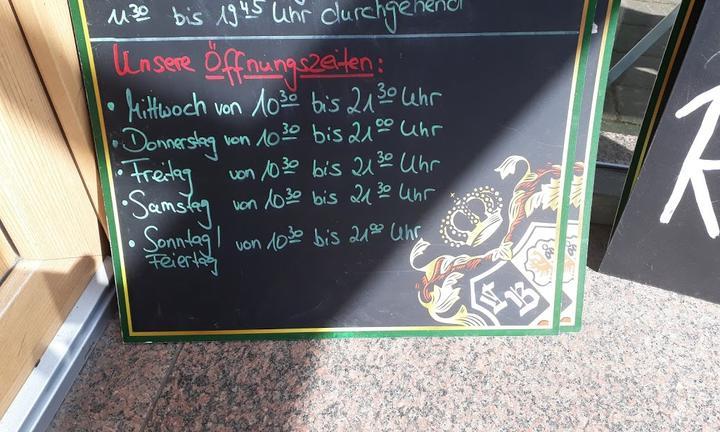 11³⁰ bis 19⁴⁵ Uhr durchgehend
Unsere Öffnungszeiten:
• Mittwoch von 10³⁰ bis 21³⁰ Uhr
• Donnerstag von 10³⁰ bis 21⁰⁰ Uhr
• Freitag von 10³⁰ bis 21³⁰ Uhr
• Samstag von 10³⁰ bis 21³⁰ Uhr
• Sonntag/ von 10³⁰ bis 21⁰⁰ Uhr
Feiertag